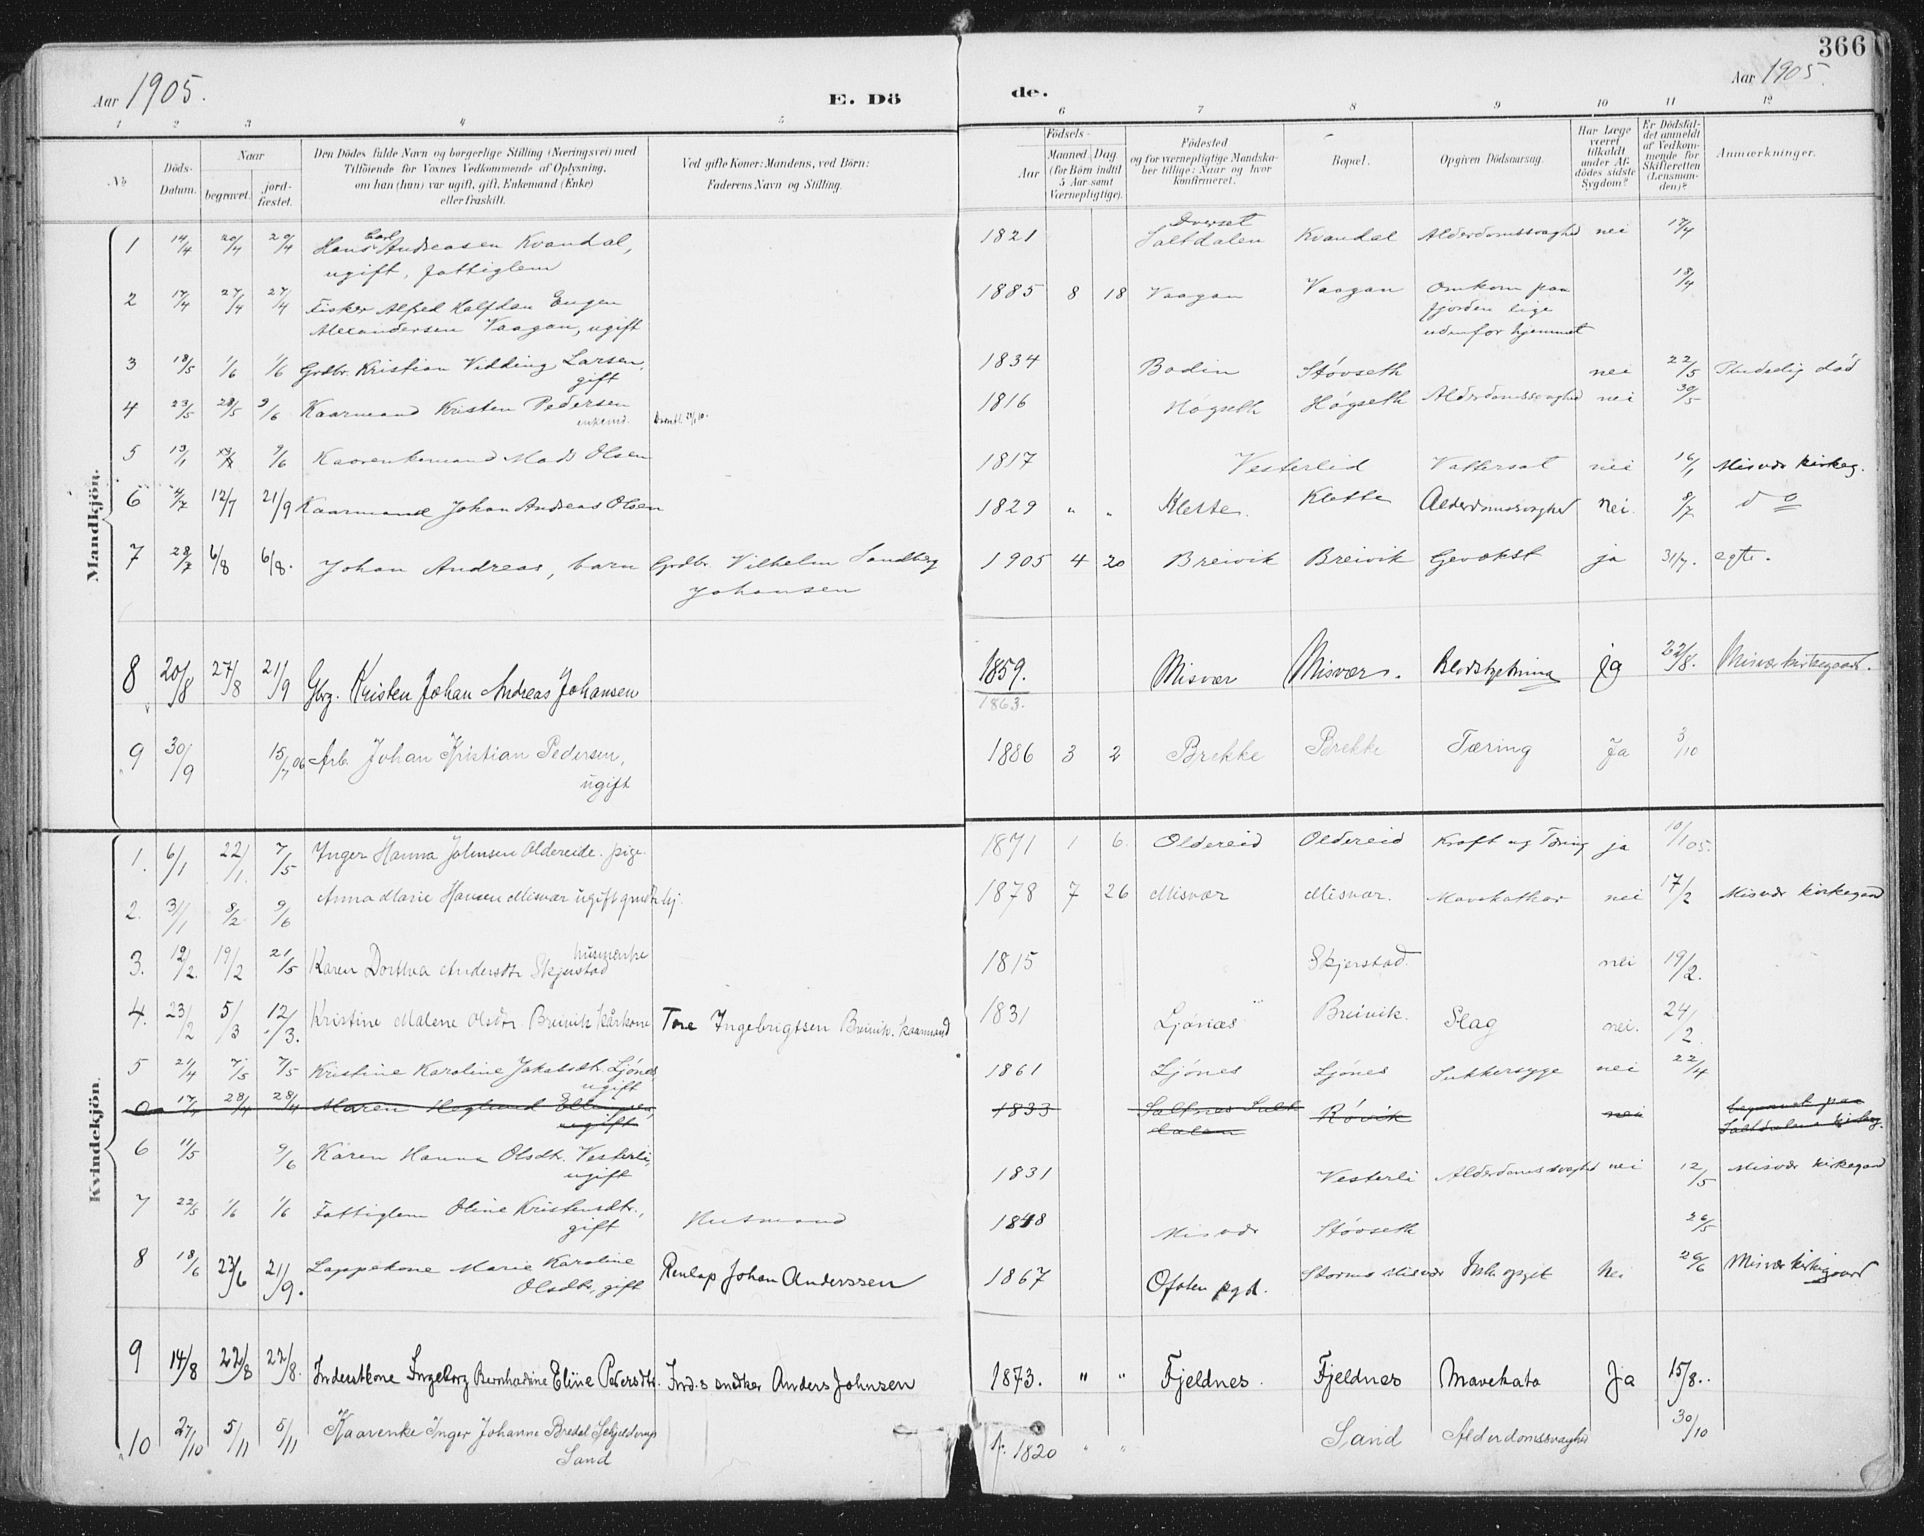 366
Aar 1905.
E. Dö
de.
Aar 1905.
1 2 3 4 5 6 7 8 9 10 11 12
No
Döds-
Datum.
Naar
begravet.
jord-
fæstet.
Den Dödes fulde Navn og borgerlige Stilling (Næringsvei) med
Tilföiende for Voxnes Vedkommende af Oplysning,
om han (hun) var ugift, gift, Enkemand (Enke)
eller fraskilt.
Ved gifte Koner: Mandens, ved Börn:
Faderens Navn og Stilling.
Födsels-
Aar
Maaned Dag
(for Börn indtil
5 Aar samt
Værnepligtige).
Födested
og for værnepligtige Mandska-
ber tillige: Naar og hvor
konfirmeret.
Bopæl.
Opgiven Dödsaarsag.
Har Læge
været
tilkaldt
under Af-
dödes sidste
Sygdom?
Er Dödsfal-
det anmeldt
af Vedkom-
mende for
Skifteretten
(Lensman-
den)?
Anmærkninger.
Mandkjön.
1 14/4 20/4 20/4 Hans Carl Andreasen Kvandal, 1821 Saltdalen Kvandal Alderdomssvaghed nei 17/4
ugift, fattiglem
2 17/4 27/4 27/4 Fisker Alfred Halfdan Eugen 1885 8 18 Vaagan Vaagan Omkom paa 18/4
Alexandersen Vaagan, ugift fjorden lige
udenfor hjemmet
3 18/5 1/6 1/6 Grdbr. Kristian Vidding Larsen, 1834 Bodin Støvseth nei 22/5 Pludselig död
gift
4 23/5 28/5 9/6 Kaarmand Kristen Pedersen 1816 Høgseth Høgseth Alderdomssvaghed nei 30/5
enkemd.
5 13/1 9/6 Kaarenkemand Mads Olsen 1817 Vesterlid nei 16/1 Misvær kirkeg.
6 4/7 12/7 21/9 Kaarmand Johan Andreas Olsen 1829 " " Klette. Klette Alderdomssvaghed Nei. 8/7 do
7 28/7 6/8 6/8. Johan Andreas, barn Grdbr. Vilhelm Sandberg 1905 4 20 Breivik Breivik Gevækst ja 31/7. egte.
Johansen
8 20/8 27/8 21/9 Gbrg. Kristen Johan Andreas Johansen 1859. Misvær Misvær. Blodstyrtning ja 22/8. Misvær kirkegaard.
1863.
9 30/9 15/7 06 Arb. Johan Kristian Pedersen, 1886 3 2 Brekke Brekke Tæring Ja 3/10
ugift
Kvindekjön.
1. 6/1 22/1. 7/5 Inger Hanna Johnsen Oldereide. pige. 1871 1 6 Oldereid Oldereid Kræft og Tæring ja 10/1 05.
2. 31/1 8/2 9/6 Anna Marie Hansen Misvær ugift 1878 7 26 Misvær Misvær. Mavekathar nei 17/2 Misvær kirkegaard
3. 12/2. 19/2 21/5 Karen Dorthea Andersdtr Skjerstad husmenke 1815 Skjerstad. nei 19/2.
4. 23/2 5/3 12/3. Kristine Malene Olsdtr Breivik kårkone Tore Ingebrigtsen Breivik, kaarmand 1831 Ljönæs Breivik. Slag nei. 24/2.
5 21/4 7/5 7/5 Kristine Karoline Jakobsdtr. Ljönes, 1861 Ljönes Ljönes Sukkersyge nei 22/4
ugift
0 17/4 28/4 28/4 Maren Heglund Ellingsen, 1833 Saltnes Salt Røvik nei begravet paa
ugift dalen Saltdalens kirkeg.
6 11/5 9/6 Karen Hanna Olsdtr. Vesterli, 1831 Vesterli Alderdomssvaghed nei 12/5 Misvær kirkegaard
ugift
7 22/5 1/6 1/6 Fattiglem Oline Kristensdtr., Husmand 1848 Misvær Støvseth 26/5
gift
8 18/6 23/6 21/9. Lappekone Marie Karoline Renlap Johan Anderssen 1867 Ofoten pgd. Misvær Ikke opgit Nei 26/6 Misvær kirkegaard
Olsdtr, gift
9 14/8 22/8 22/8. Inderstkone Ingeborg Bernhadine Eline Pedersdtr. Inds. snekker Anders Johnsen 1873. " " Fjeldnes. Fjeldnes Mavekata Ja 15/8.
10 27/10 5/11 5/11 Kaarenke Inger Johanne Bredal Schjelderup 1820 " " Sand Alderdomssvaghed 30/10
Sand